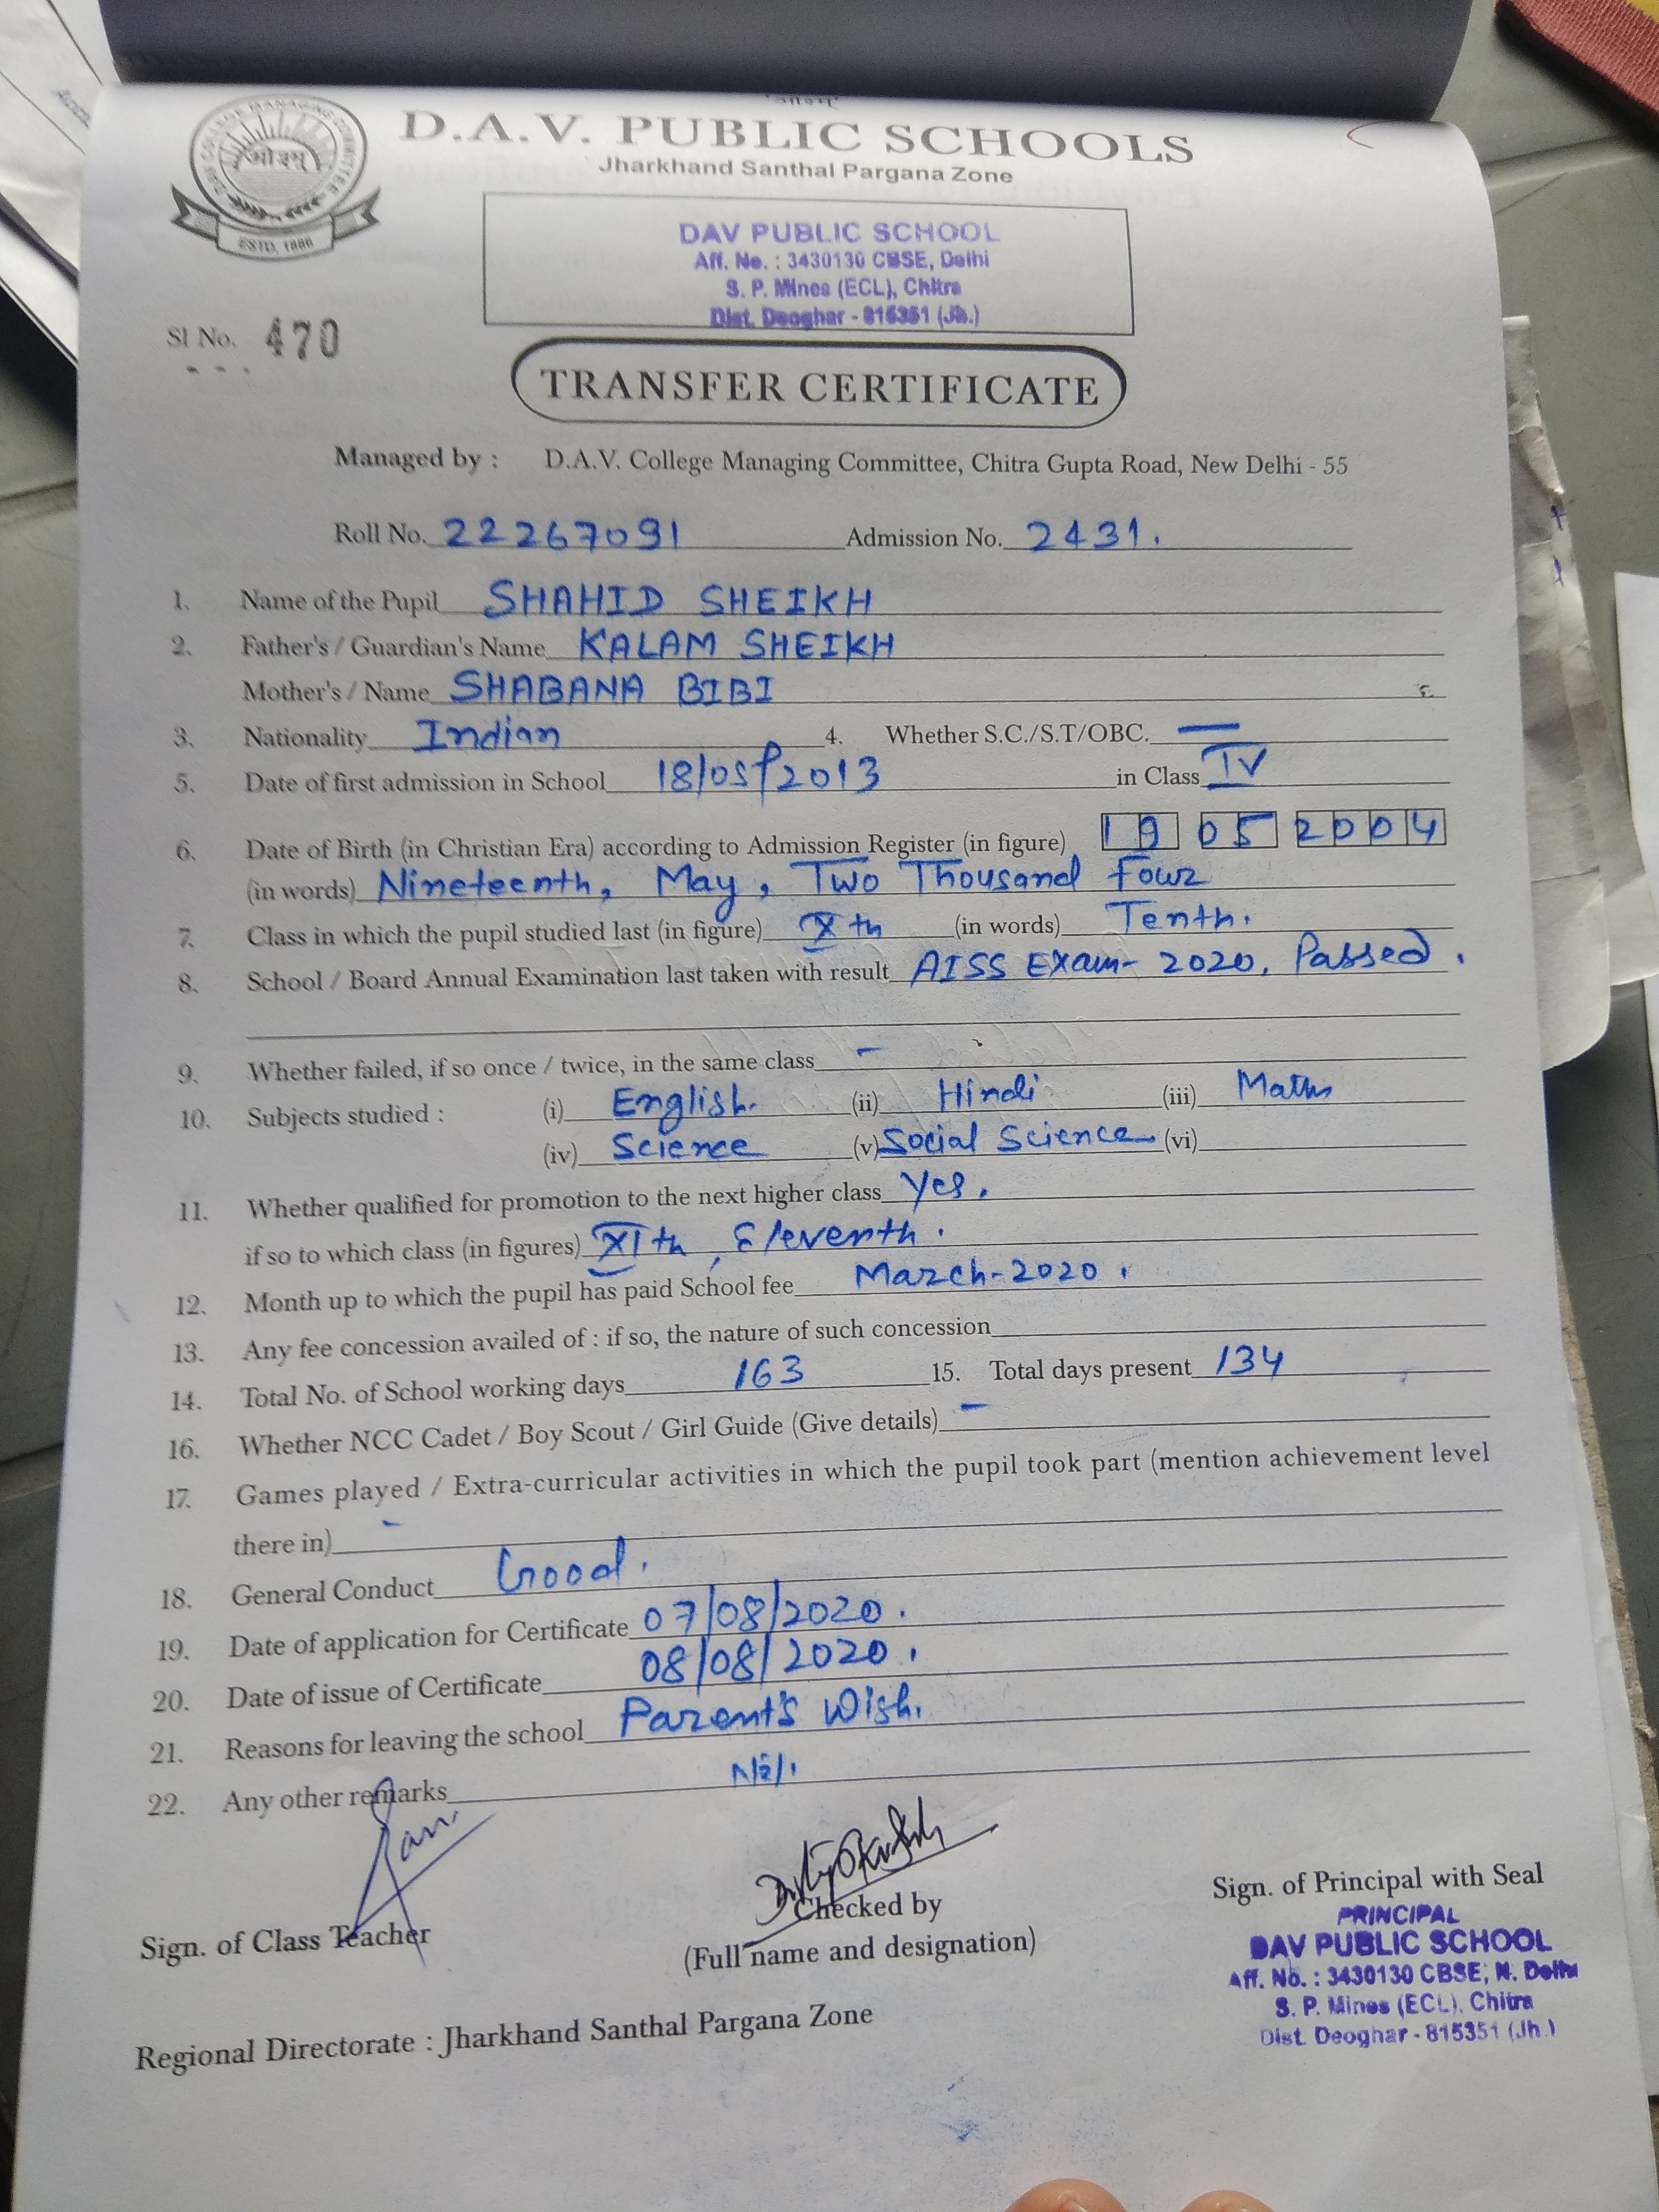 'ओ३म्'
D.A.V. PUBLIC SCHOOLS
Jharkhand Santhal Pargana Zone
COLLEGE MANAGING COMMITTEE
ओ३म्
ESTD. 1886
DAV PUBLIC SCHOOL
Aff. No. : 3430130 CBSE, Delhi
S. P. Mines (ECL), Chitra
Dist. Deoghar - 815351 (Jh.)
Sl No. 470
TRANSFER CERTIFICATE
Managed by : D.A.V. College Managing Committee, Chitra Gupta Road, New Delhi - 55
Roll No. 22267091 Admission No. 2431.
1. Name of the Pupil SHAHID SHEIKH
2. Father's / Guardian's Name KALAM SHEIKH
Mother's / Name SHABANA BIBI
3. Nationality Indian 4. Whether S.C./S.T/OBC. —
5. Date of first admission in School 18/05/2013 in Class IV
6. Date of Birth (in Christian Era) according to Admission Register (in figure) 19 05 2004
(in words) Nineteenth, May, Two Thousand Four
7. Class in which the pupil studied last (in figure) Xth (in words) Tenth.
8. School / Board Annual Examination last taken with result AISS Exam- 2020, Passed.
9. Whether failed, if so once / twice, in the same class -
10. Subjects studied : (i) English (ii) Hindi (iii) Maths
(iv) Science (v) Social Science (vi)
11. Whether qualified for promotion to the next higher class Yes.
if so to which class (in figures) XIth, Eleventh.
12. Month up to which the pupil has paid School fee March-2020.
13. Any fee concession availed of : if so, the nature of such concession
14. Total No. of School working days 163 15. Total days present 134
16. Whether NCC Cadet / Boy Scout / Girl Guide (Give details) -
17. Games played / Extra-curricular activities in which the pupil took part (mention achievement level
there in) -
18. General Conduct Good.
19. Date of application for Certificate 07/08/2020.
20. Date of issue of Certificate 08/08/2020.
21. Reasons for leaving the school Parent's Wish.
22. Any other remarks Nil.
Sign. of Class Teacher
Checked by
(Full name and designation)
Sign. of Principal with Seal
PRINCIPAL
DAV PUBLIC SCHOOL
Aff. No. : 3430130 CBSE, N. Delhi
S. P. Mines (ECL), Chitra
Dist. Deoghar - 815351 (Jh.)
Regional Directorate : Jharkhand Santhal Pargana Zone